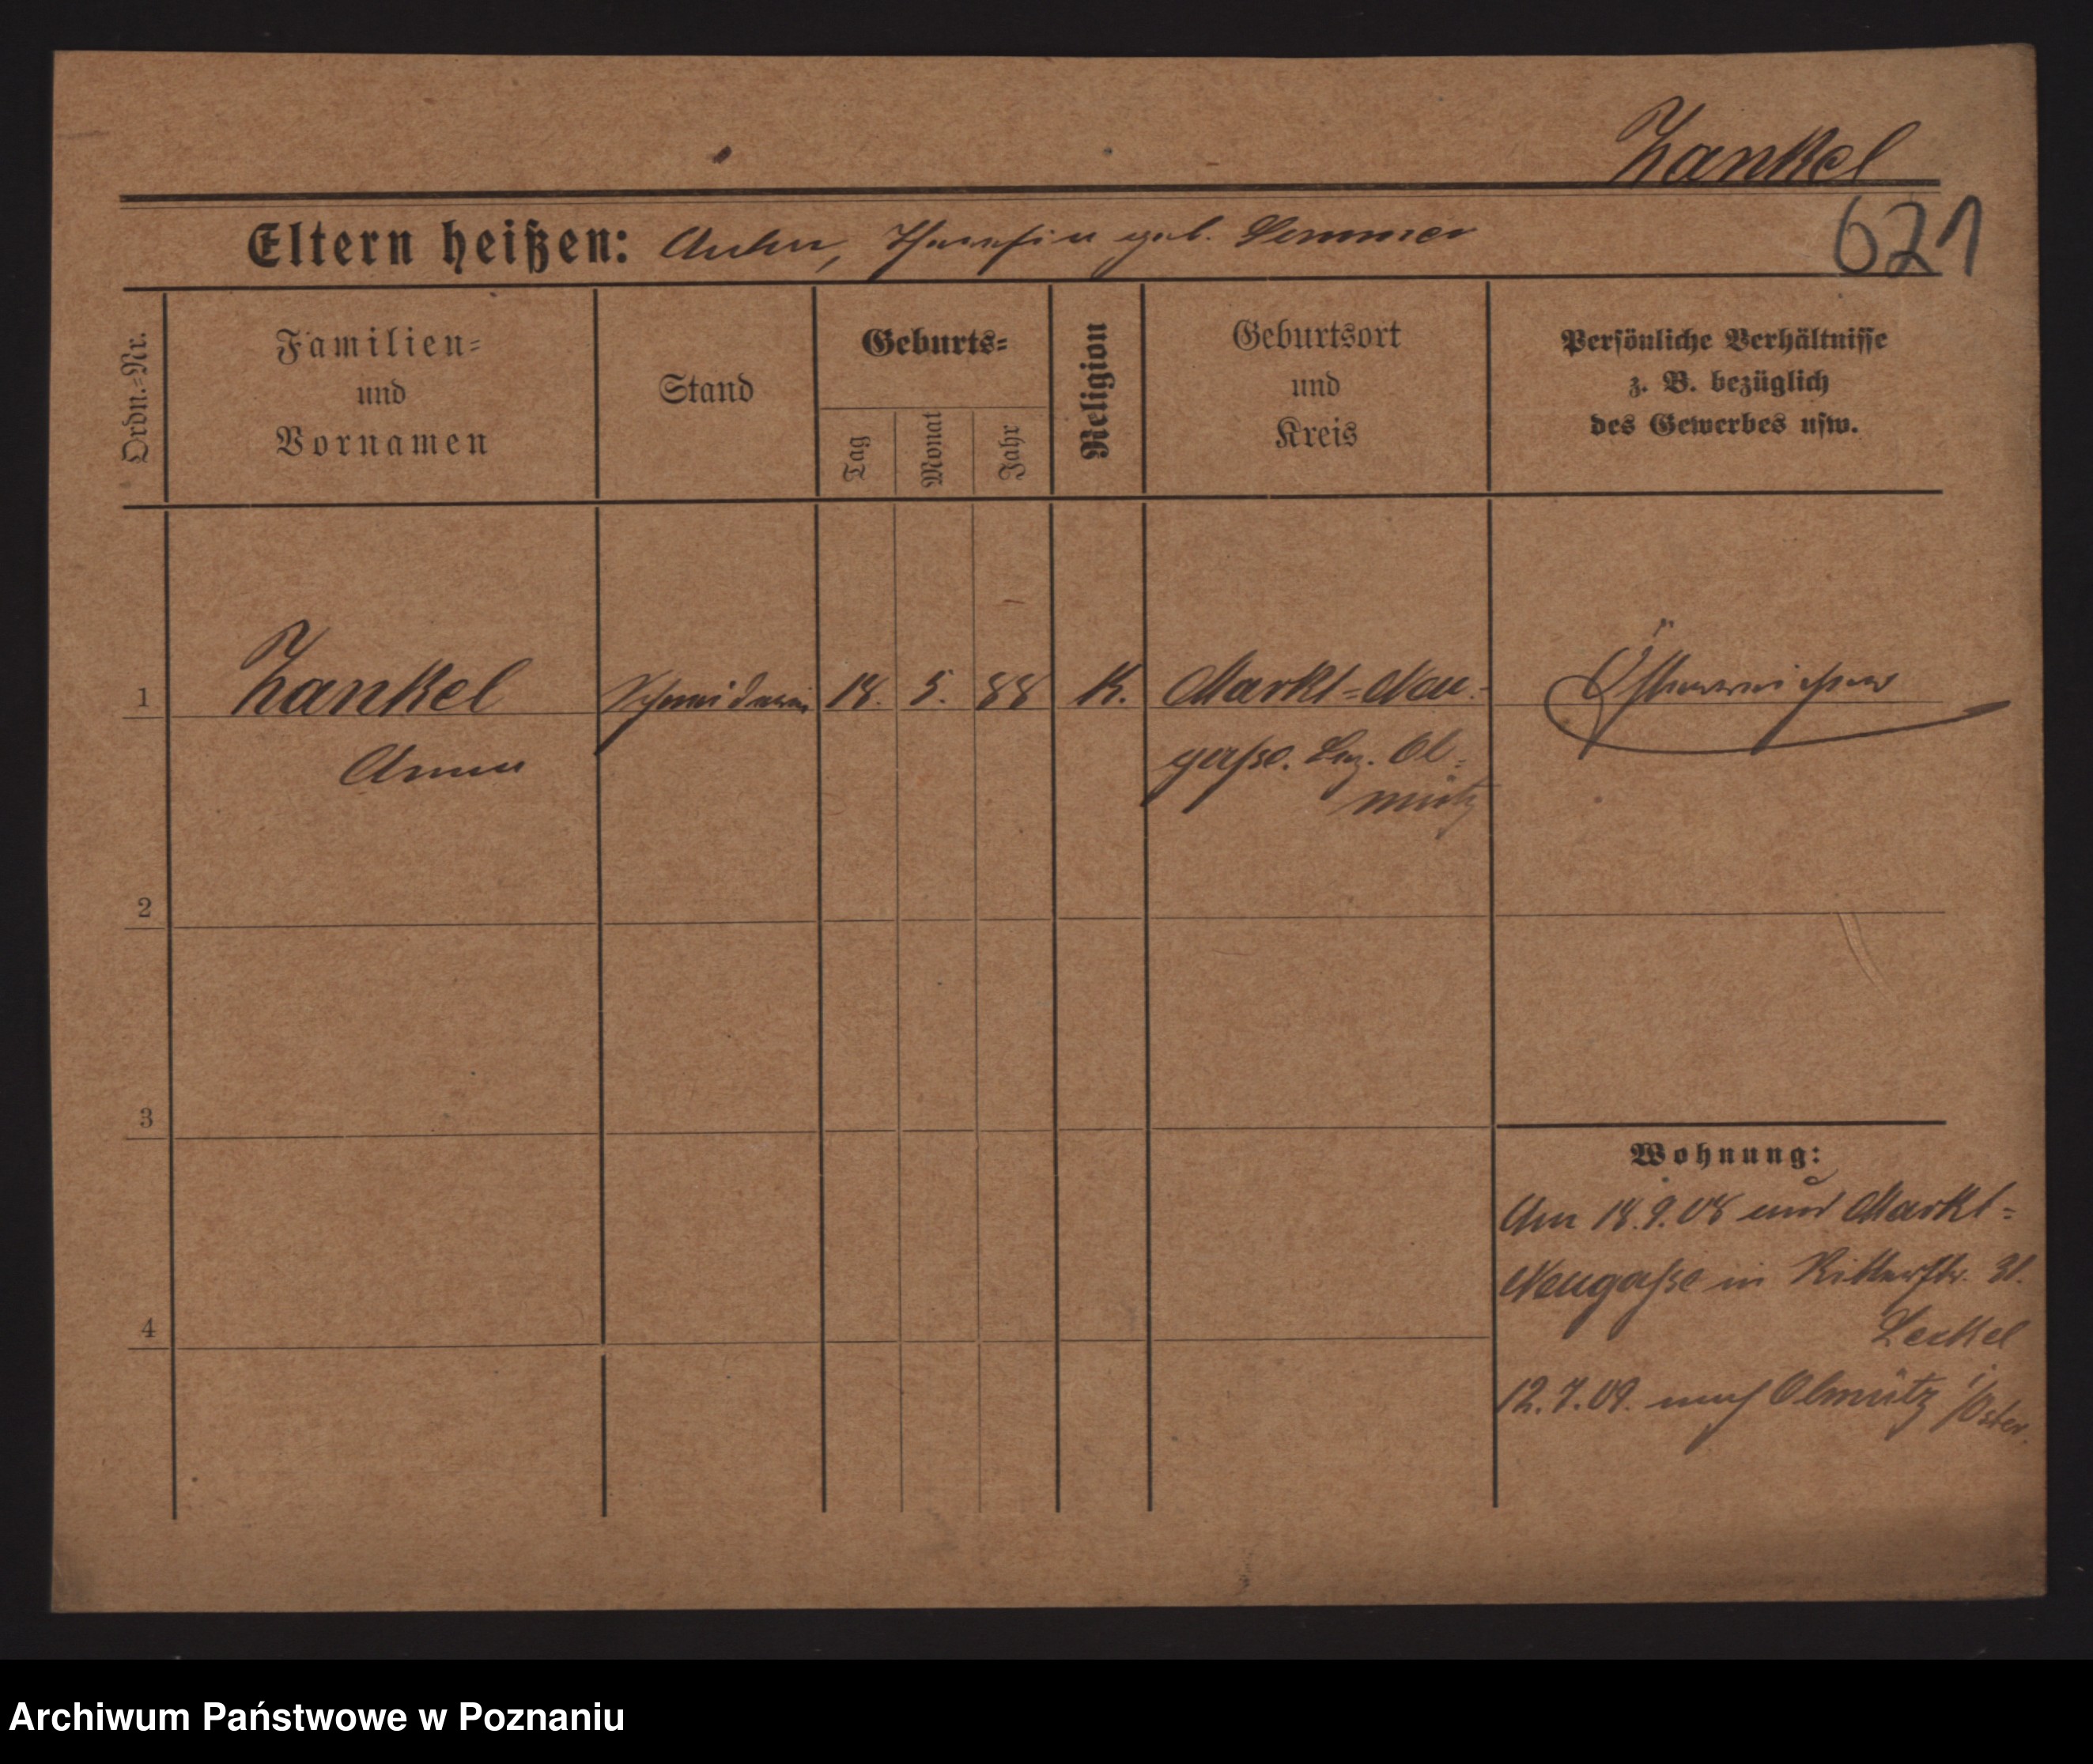 Zankel
621
Eltern heißen: Anton, Theresia geb. Semmer
Ordn.-Nr.
Familien-
und
Vornamen
Stand
Geburts-
Tag
Monat
Jahr
Religion
Geburtsort
und
Kreis
Persönliche Verhältnisse
z. B. bezüglich
des Gewerbes usw.
1
Zankel
Anna
Schneiderin
18. 5. 88
K.
Markt-Neu-
gasse. Bez. Ol-
mütz
Österreicher
2
3
4
Wohnung:
Am 18.9.08 aus Markt-
Neugasse in Ritterstr. 31.
12.7.09. nach Olmütz i/Öster.
Archiwum Państwowe w Poznaniu